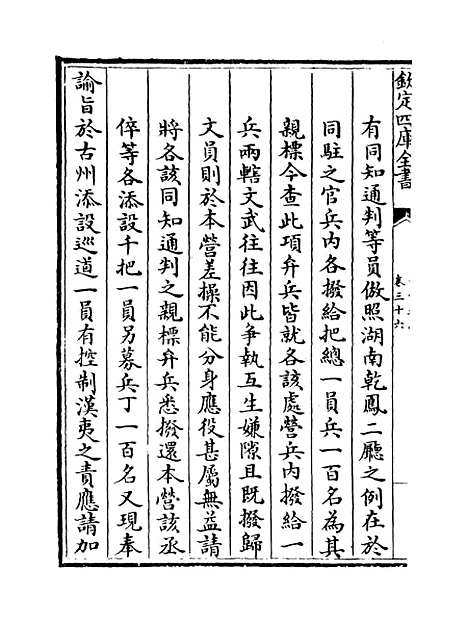 欽定四庫全書
卷三十六
有同知通判等員倣照湖南乾鳳二廳之例在於
同駐之官兵內各撥給把總一員兵一百名為其
親標今查此項弁兵皆就各該處營兵內撥給一
兵兩轄文武往往因此爭執互生嫌隙且既撥歸
文員則於本營差操不能分身應役甚屬無益請
將各該同知通判之親標弁兵悉撥還本營該丞
倅等各添設千把一員另募兵丁一百名又現奉
諭旨於古州添設巡道一員有控制漢夷之責應請加